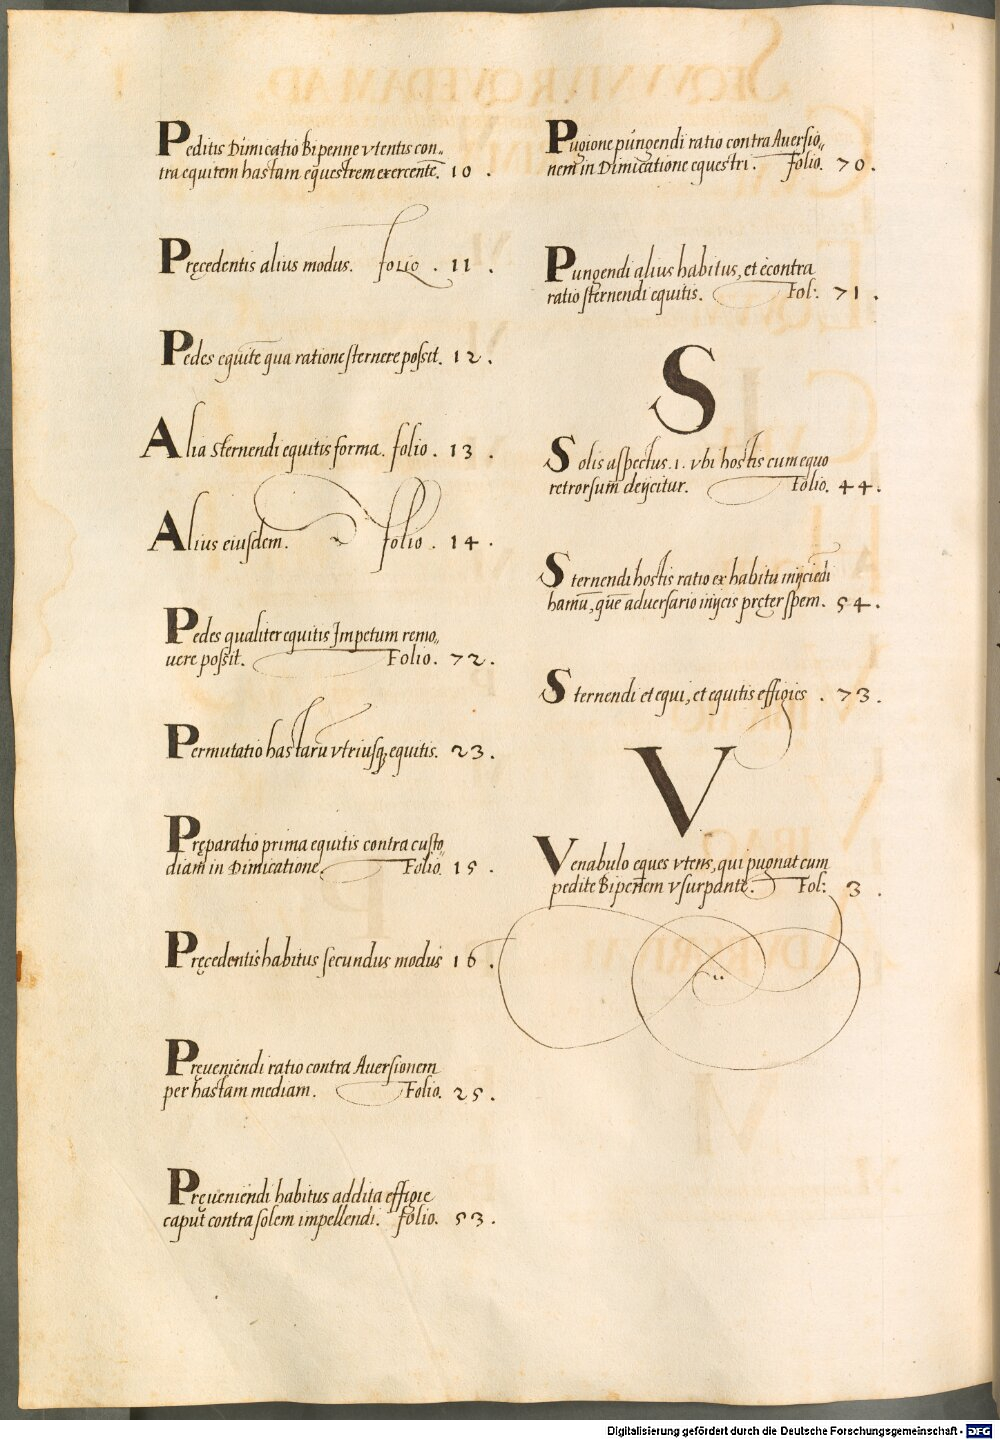 Peditis Dimicatio Bipenne vtentis con„
tra equitem hastam equestrem exercente. 10 .
Pręcedentis alius modus. folio . 11 .
Pedes equitē qua ratione sternere possit. 12 .
Alia Sternendi equitis forma. folio . 13 .
Alius eiusdem. folio . 14 .
Pedes qualiter equitis Impetum remo„
uere possit. Folio. 72 .
Permutatio hastarū vtriusq, equitis. 23 .
Pręparatio prima equitis contra custo„
diam in Dimicatione. Folio. 15 .
Pręcedentis habitus secundus modus 16 .
Pręueniendi ratio contra Auersionem
per hastam mediam. Folio. 25 .
Pręueniendi habitus addita effigie
caput contra solem impellendi. folio. 53 .
Pugione pungendi ratio contra Auersio„
nem in Dimicatione equestri. folio. 70 .
Pungendi alius habitus, et ècontra
ratio sternendi equitis. Fol: 71 .
S
Solis aspectus .1. vbi hostis cum equo
retrorsum deijcitur. Folio. 44 .
Sternendi hostis ratio ex habitu inijciēdi
hamū, quē aduersario inijcis pręter spem. 54 .
Sternendi et equi, et equitis effigies . 73 .
V
Venabulo eques vtens, qui pugnat cum
pedite Bipenem vsurpante. Fol: 3 .
Digitalisierung gefördert durch die Deutsche Forschungsgemeinschaft - DFG